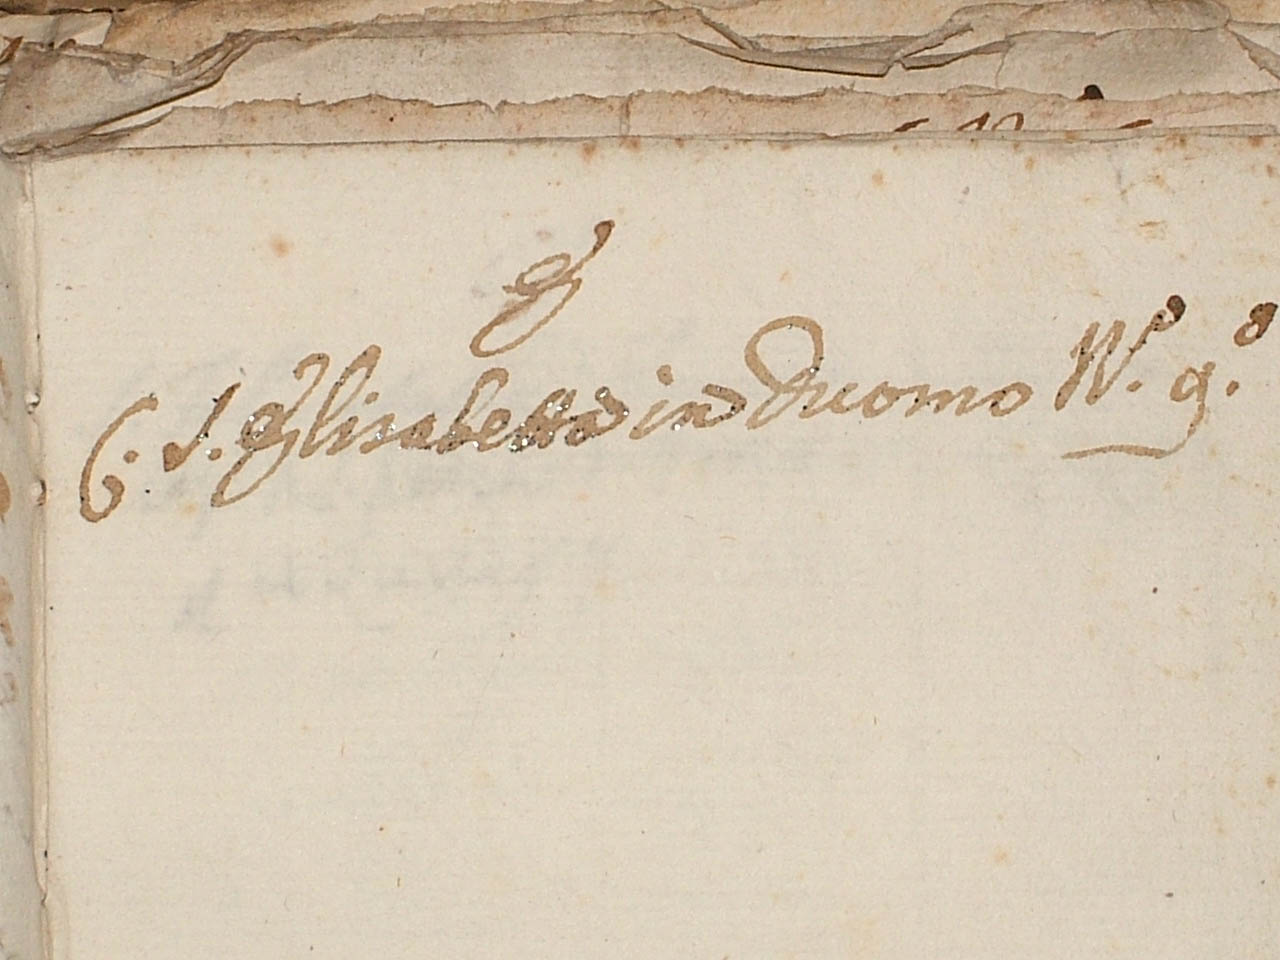 E
C. S. Elisabetta in Duomo N.º 9.º